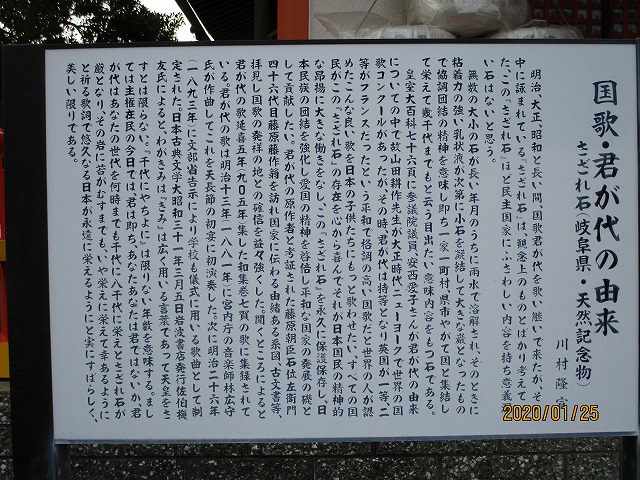 国歌・君が代の由来
さざれ石(岐阜県・天然記念物)
川村隆
明治、大正、昭和と長い間、国歌君が代を歌い継いで来たが、その
中に詠まれている「さざれ石」は、観念上のものとばかり考えて
た。この「さざれ石」ほど民主国家にふさわしい内容を持ち意義
い石はないと思う。
無数の大小の石が長い年月のうちに雨水で溶解され、そのときに
粘着力の強い乳状液が次第に小石を凝結して大きな巌となったもの
で協調団結の精神を意味し即ち一家一町村一県市やがて国と集結し
て栄えて幾千代までもと云う目出たい意味内容をもつ石である。
皇室大百科七十六頁に参議院議員、安西愛子さんが君が代の由来
についての中で故山田耕作先生が大正時代ニューヨークで世界の国
歌コンクールがあったが、その時、君が代は特等となり英国が一等、二
等がフランスだったという平和で格調の高い国歌だと世界の人が認
めたこんな良い歌を日本の子供たちにもっと歌わせたい、すべての国
民がこの「さざれ石」の存在を心から喜んでそれが日本国民の精神的
な昂揚に大きな働きをなし、この「さざれ石」を永久に保護保存し、日
本民族の団結を強化し愛国の精神を啓培し平和な国家の発展の礎と
して貢献したい。君が代の原作者と考証された藤原朝臣石位左衛門
四十六代目藤原藤作翁を訪れ国家に伝わる由緒ある系図、古文書等、
拝見し国歌の発祥の地との確信を益々強くした。聞くところによると
君が代の歌延喜五年(九〇五年)集した和集巻七賀の歌に集録されて
いる。君が代の歌は明治十三年(一八八一年)に宮内庁の音楽師林広守
氏が作曲してこれを天長節の初宴に初演奏した。次に明治二十六年
(一八九三年)に文部省告示により学校も儀式に用いる歌曲として制
定された。日本古典文学大昭和三十一年三月五日岩波書店発行佐伯梅
友氏によると、わがきみは「きみ」は広く用いる言葉であって天皇をさ
すとは限らない。「千代にやちよに」は限りない年数を意味する。まし
ては主権在民の今日では、君は即ち、あなたあなたは君ではないか、君
が代はあなたの世代を何時までも千代に八千代に栄えとさざれ石が
巌となり、その岩に苔がむすまでも、いや栄えに栄えて幸あるように
と祈る歌詞で悠久なる日本が永遠に栄えるようにと実にすばらしく、
美しい限りである。
2020/01/25